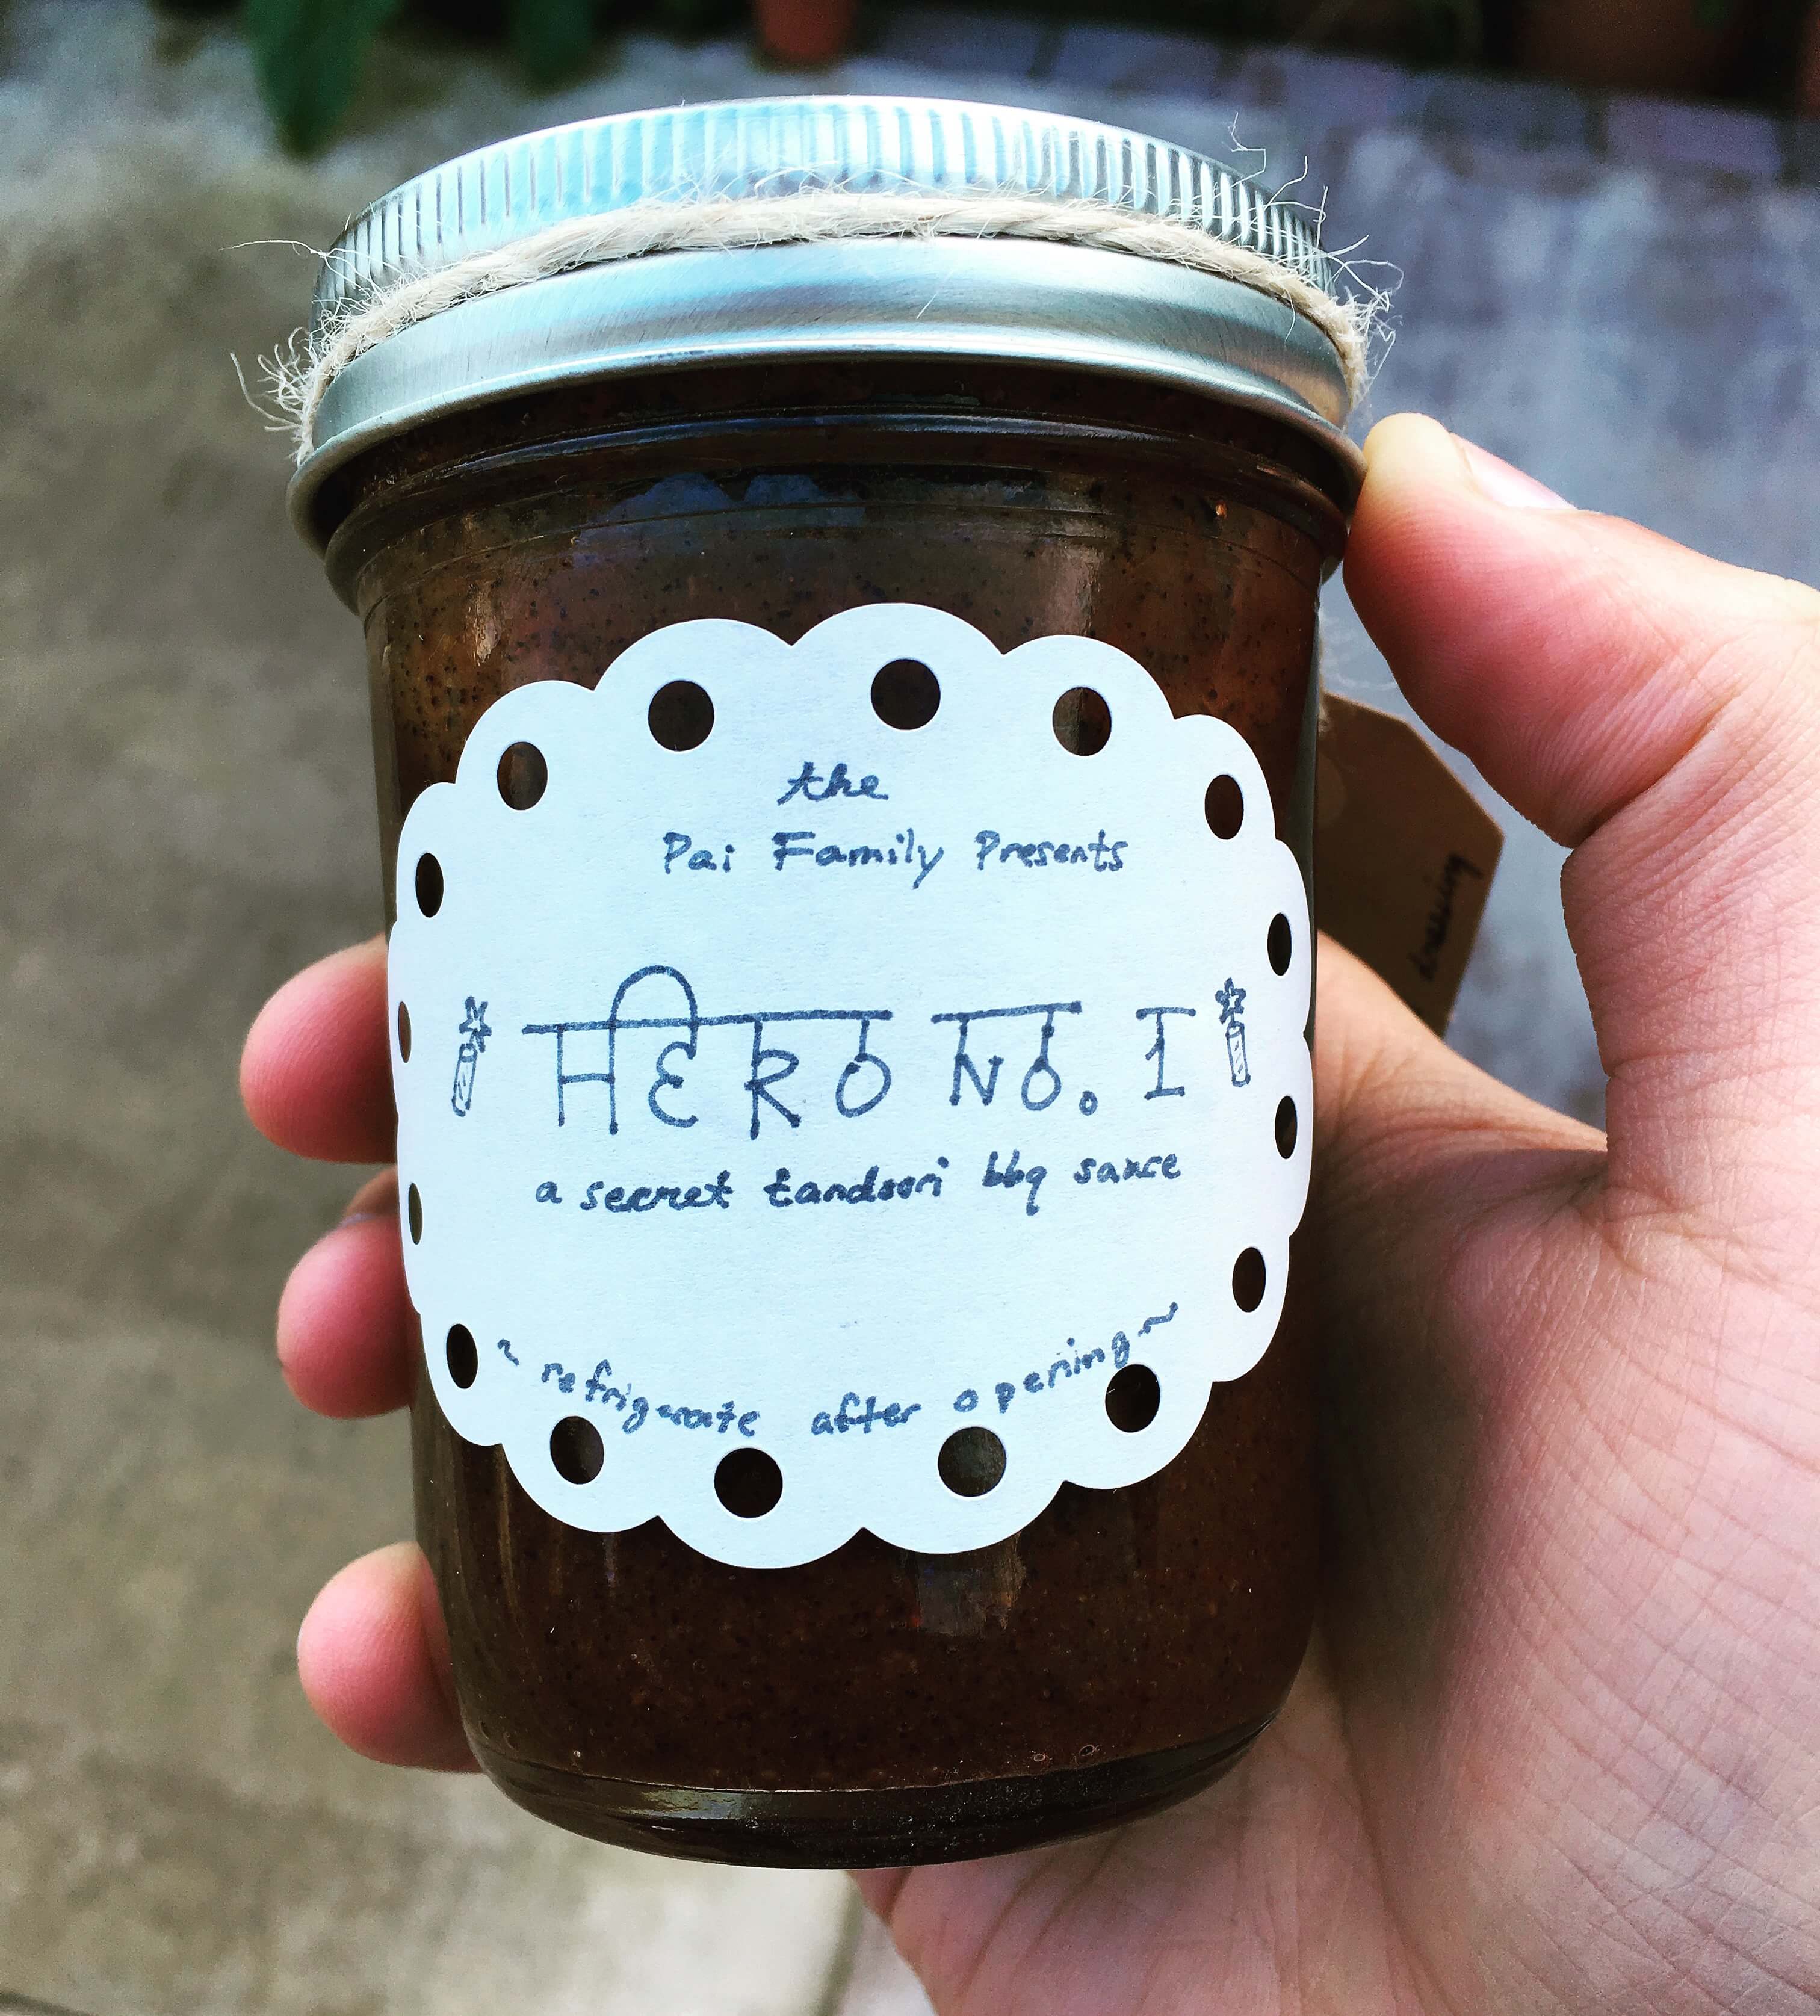 the
Pai Family Presents
HERO NO. 1
a secret tandoori bbq sauce
~ refrigerate after opening ~